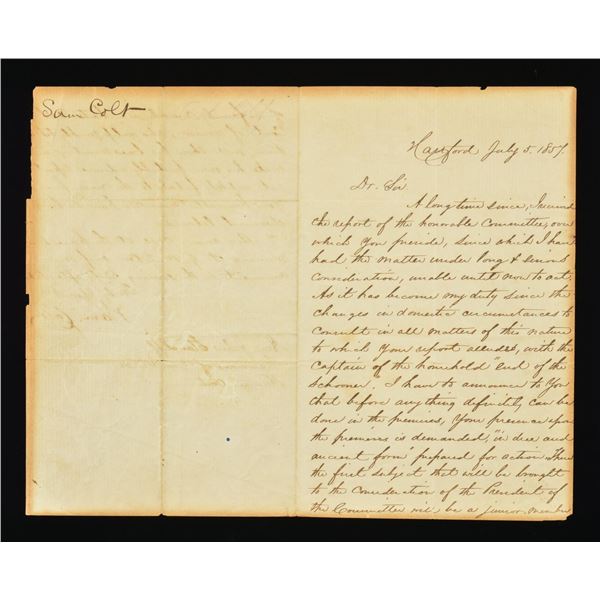 Sam Colt
Hartford July 5. 1857.
Dr. Sir
A long time since, I received
the report of the honorable Committee, over
which you preside, since which I have
had the matter under long & serious
Consideration, unable until now to act.
As it has become my duty since the
changes in domestic circumstances to
Consult in all matters of this nature
to which your report alludes, with the
Captain of the household "End of the
Schooner". I have to announce to you
that before anything definitely can be
done in the premises, your presence upon
the premises is demanded, "in due and
ancient form" prepared for action. Then
the first subject that will be brought
to the Consideration of the President of
the Committee will be a junior member